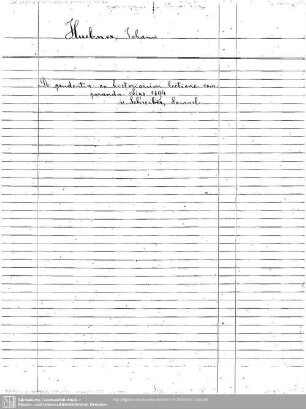 Huebner, Johann
De prudentia ex historiarum lectione com
paranda
1694
u. Schreiber, Samuel
Sächsische Landesbibliothek -
Staats- und Universitätsbibliothek Dresden